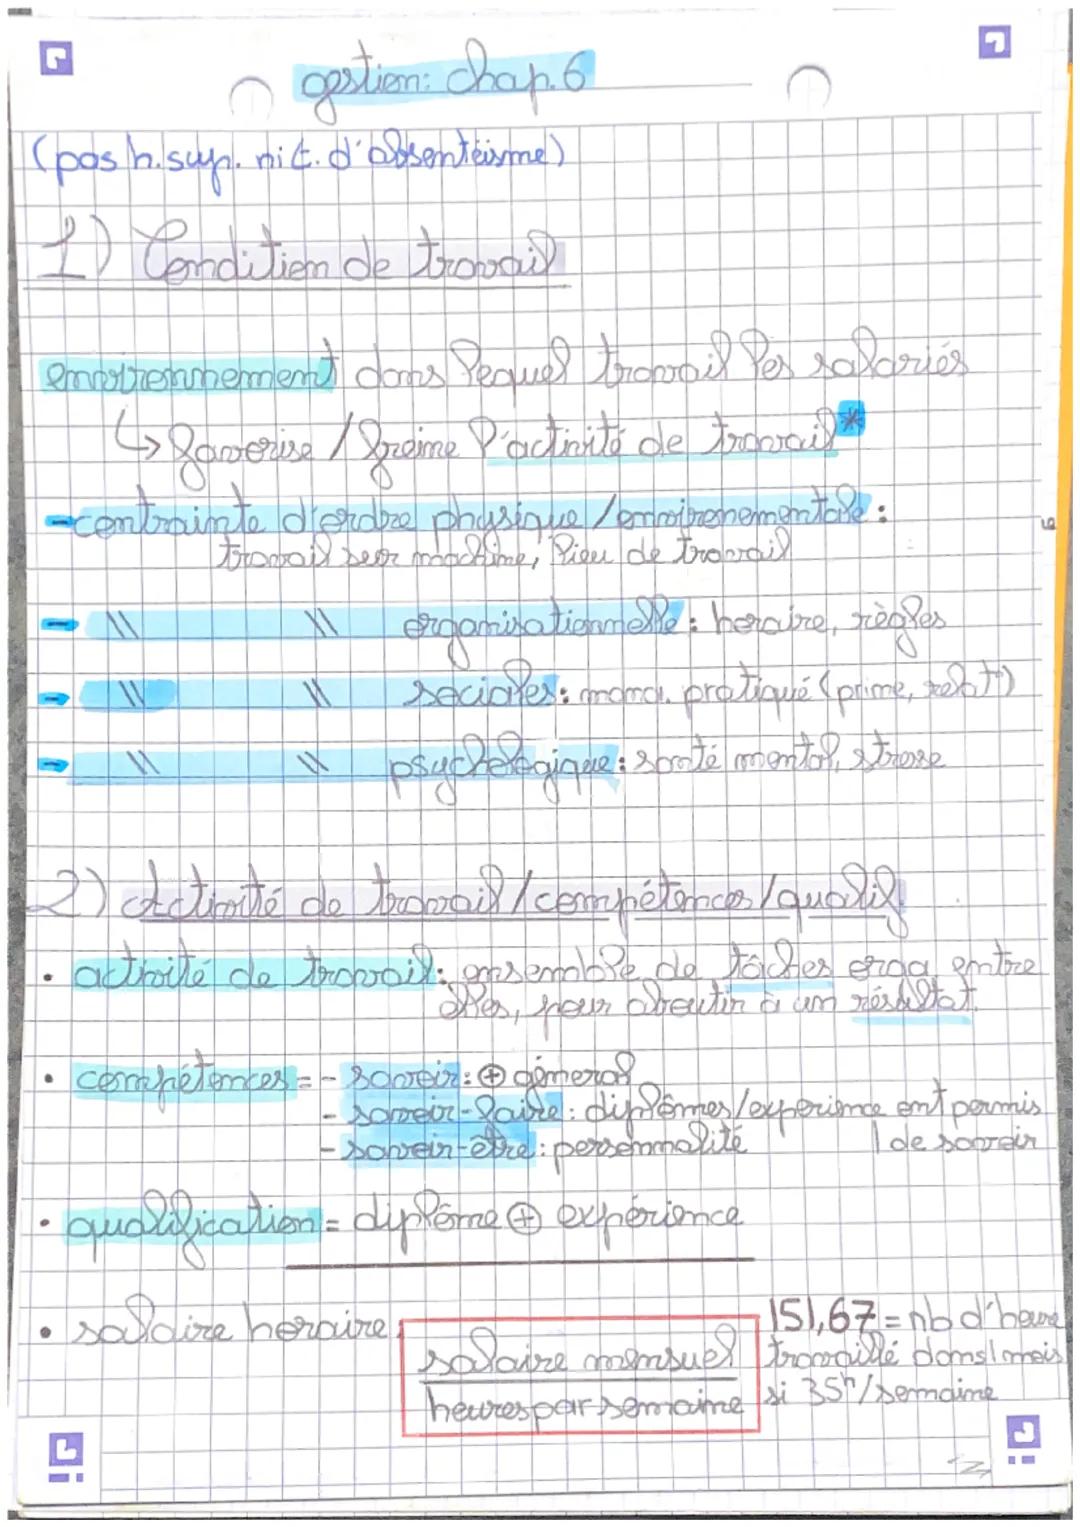 gestion: chap. 6
(pas h. sup. ni t. d'absentéisme)
1) Condition de travail
environnement dans lequel travail les salariés
↳ favorise / freine l'activité de travail*
- contrainte d'ordre physique / environementale :
travail sur machine, lieu de travail
- \\ \\ organisationnelle : horaire, règles
- \\ \\ sociales : mana. pratiqué (prime, relat°)
- \\ \\ psychologique : santé mental, stresse
2) Activité de travail / compétences / qualif.
• activité de travail : ensemble de tâches orga. entre
elles, pour aboutir à un résultat.
• compétences = - savoir : ⊕ géneral
- savoir-faire : diplômes/expérience ont permis
- savoir-être : personnalité | de savoir
• qualification = diplôme ⊕ expérience
• salaire horaire 151,67 = nb d'heure
salaire mensuel travaillé dans 1 mois
heures par semaine si 35h/semaine